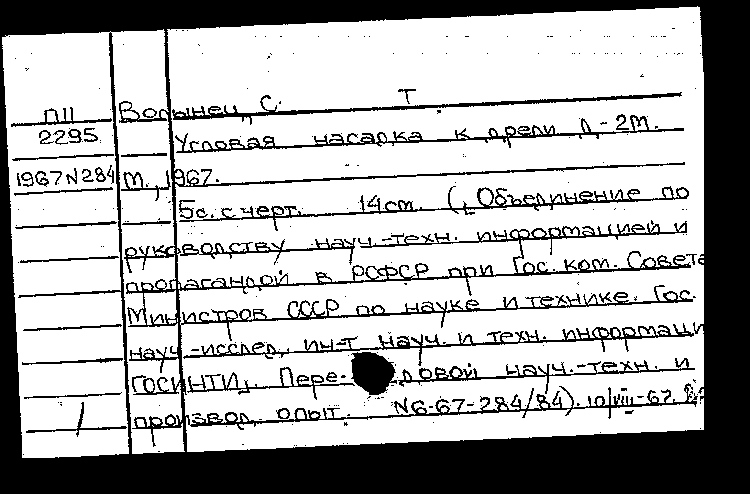 П11 Волынец, С. Т.
2295 Угловая насадка к дрели Д-2М.
1967 N284 М., 1967.
5с. с черт. 14cm. („Объединение по
руководству науч.-техн. информацией и
пропагандой в РСФСР при Гос. ком. Совета
Министров СССР по науке и технике. Гос.
науч.-исслед. ин-т науч. и техн. информаци
ГОСИНТИ„. Пере- довой науч.-техн. и
производ. опыт. N6-67-284/84). 10/VIII-67.